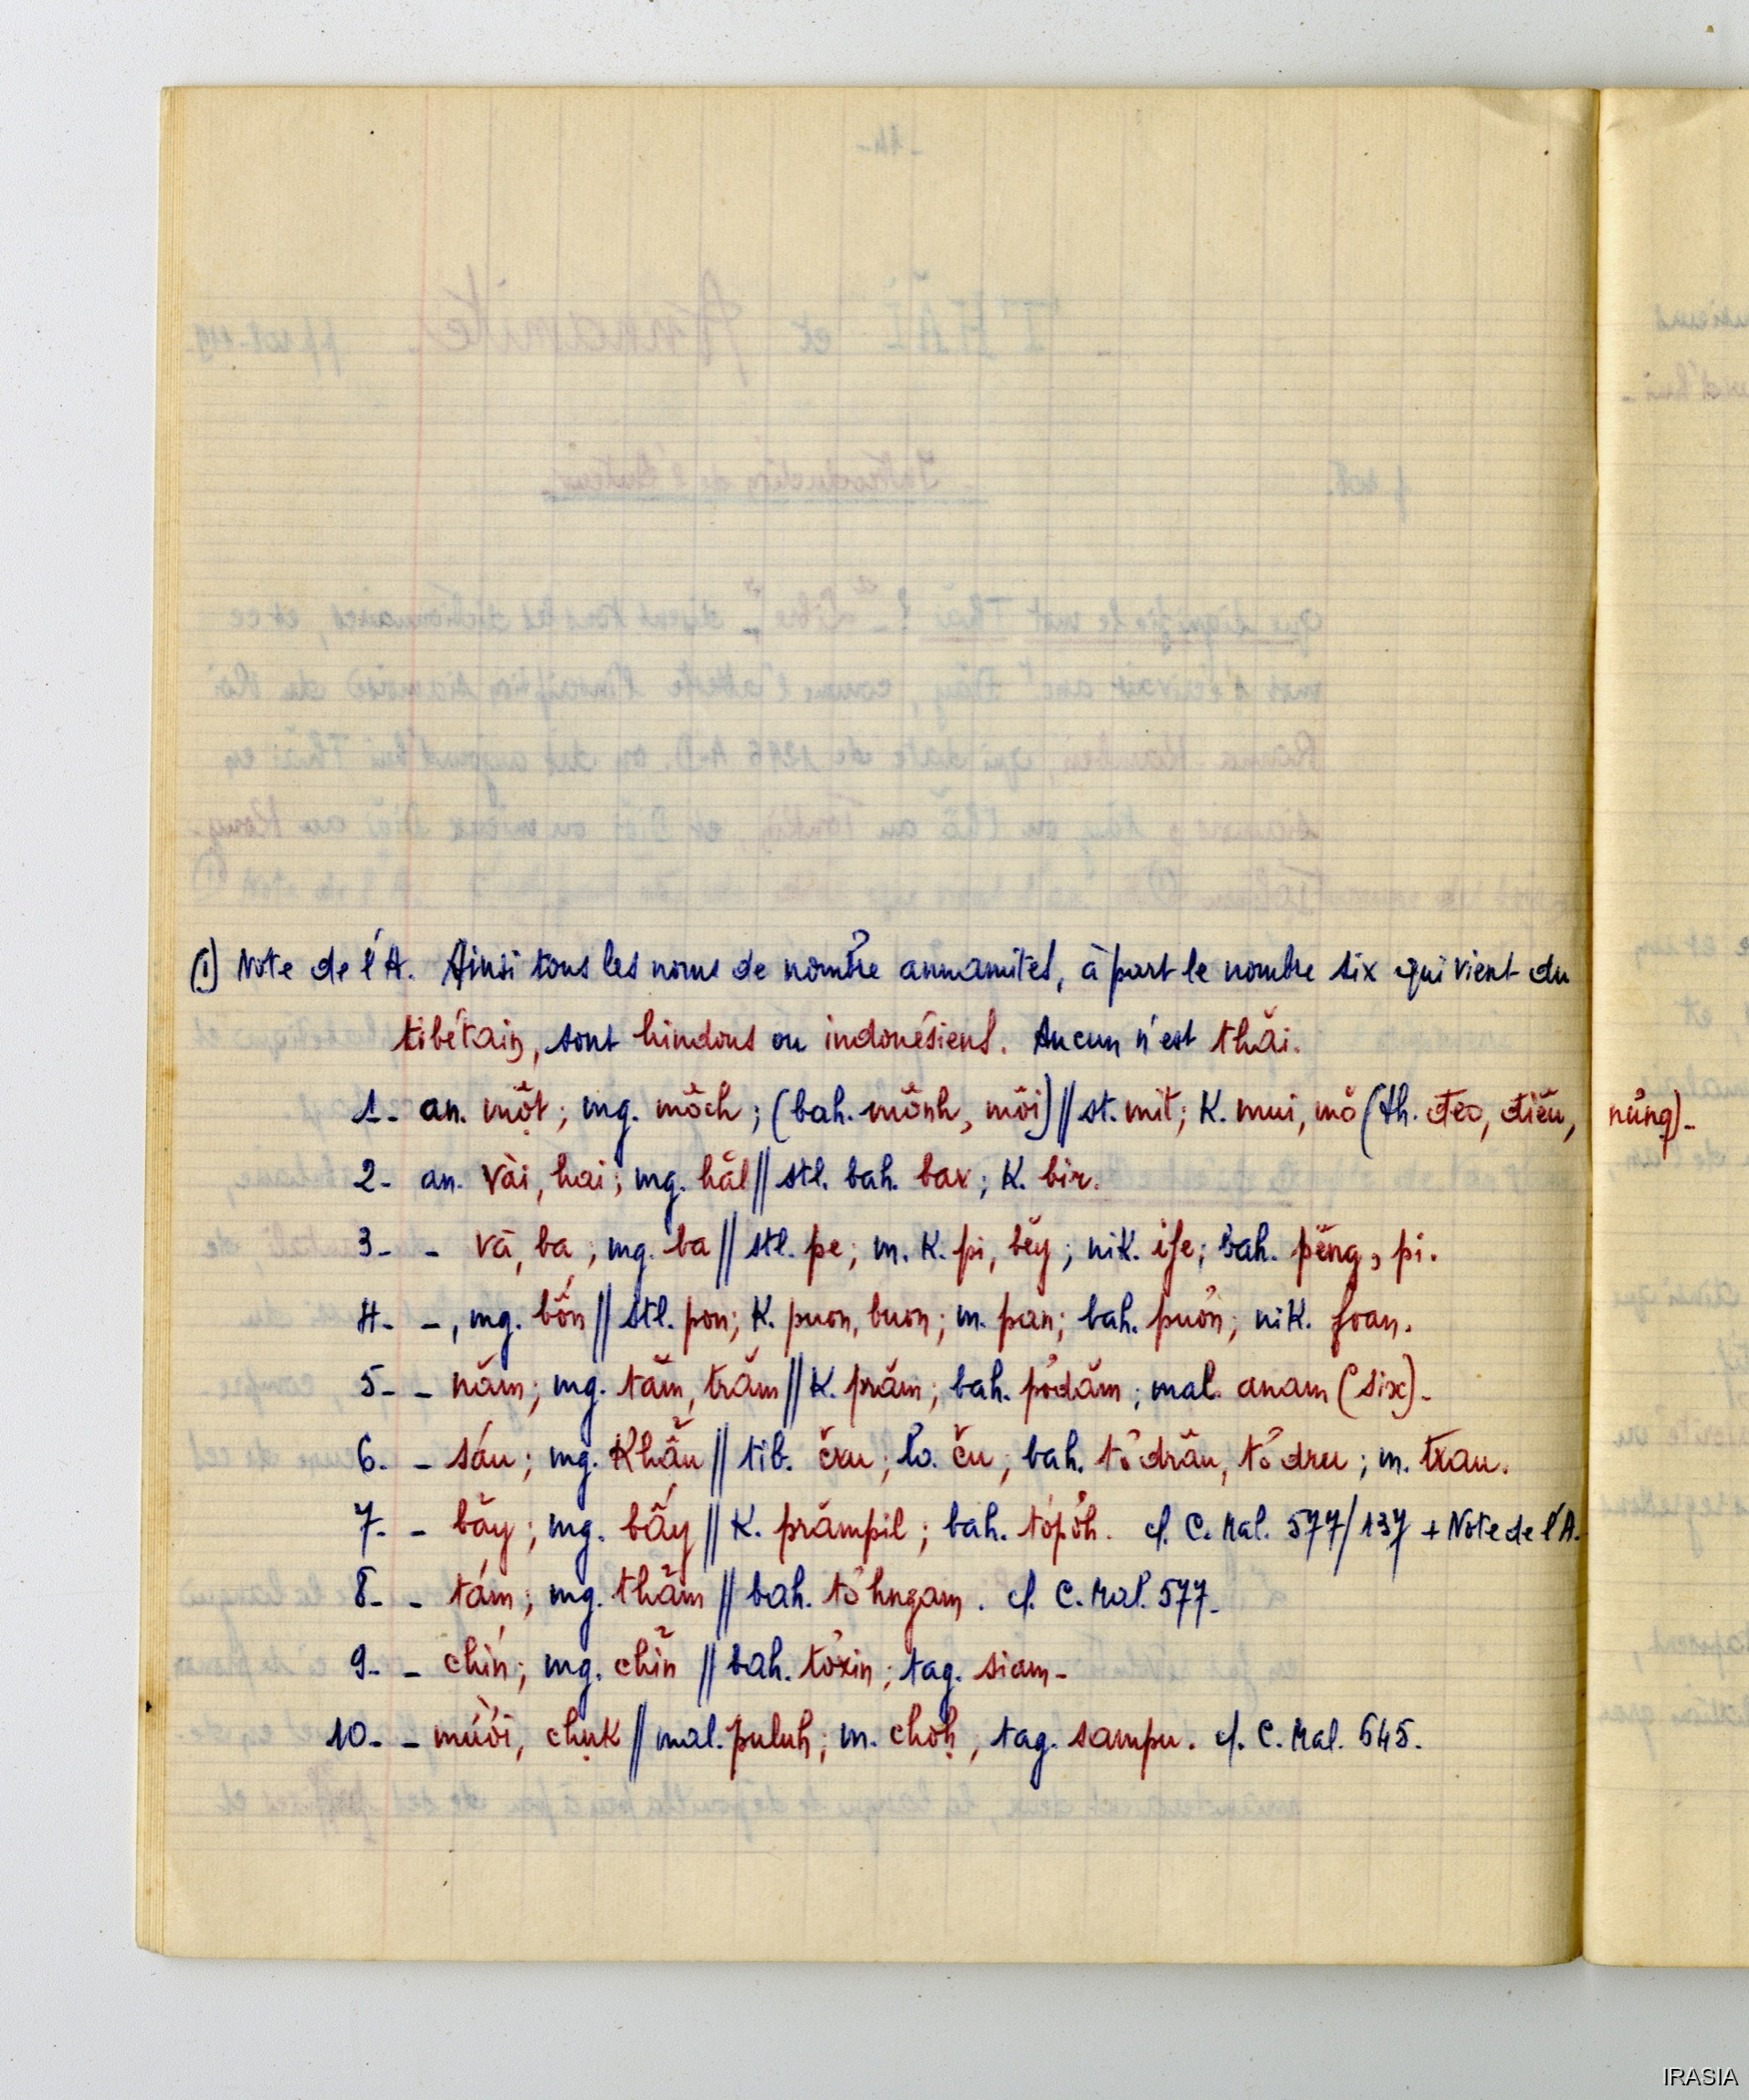 (1) Note de l'A. Ainsi tous les noms de nombre annamites, à part le nombre six qui vient du
tibétain, sont hindous ou indonésiens. Aucun n'est thăi.
1- an. một; mg. môch; (bah. mônh, môi) // st. mit; K. mui, mô (th. đeo, điêu, nưng)-
2- an. vài, hai; mg. hăl // stl. bah. bar; K. bir.
3- - và, ba; mg. ba // stl. pe; m. K. pi, bĕy; nik. ipe; bah. pĕng, pi.
4- -, mg. bốn // stl. pon; K. puon, buon; m. pan; bah. puôn; nik. foan.
5- - năm; mg. tăm, trăm // K. prăm; bah. pơdăm; mal. anam (six)-
6- - sáu; mg. Khẩu // tib. čru; lo. ču; bah. tơdrâu, tơdru; m. trau.
7- - bãy; mg. bẩy // K. prămpil; bah. tơpơh. cf. C. Mal. 577/137 + Note de l'A.
8- - tám; mg. thãm // bah. tơhngam. cf. C. Mal. 577-
9- - chín; mg. chĩn // bah. tơxin; tag. siam-
10- - mười, chụk // mal. puluh; m. choḥ, tag. sampu. cf. C. Mal. 645.
IRASIA